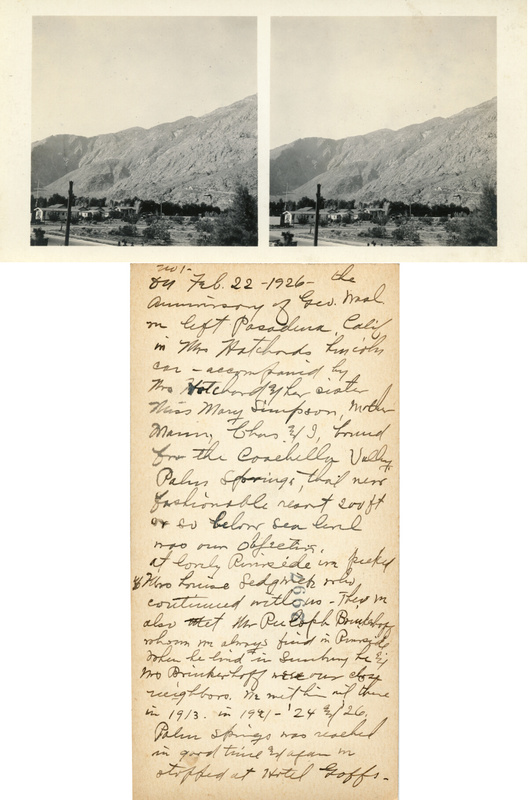 No 1-
On Feb. 22 - 1926 - the
Anniversary of Geo. Wash
we left Pasadena, Calif
in Mrs Hotchords Lincoln
car - accompanied by
Mrs Hotchord & her sister
Miss Mary Simpson, Mother
Mann, Chas & I, bound
for the Coachella Valley.
Palm Springs, that new
fashionable resort 200 ft
or so below sea level
was our objective.
at lovely Riverside we picked
up Mrs Louise Sedgwick who
continued with us - There we
also met Mr Brinkerhoff
whom we always find in Riverside
When he lived in he &
Mrs Brinkerhoff were our close
neighbors. We met him there
in 1913. in 1921 - '24 & '26.
Palm Springs was reached
in good time & again we
stopped at Hotel Goffs -